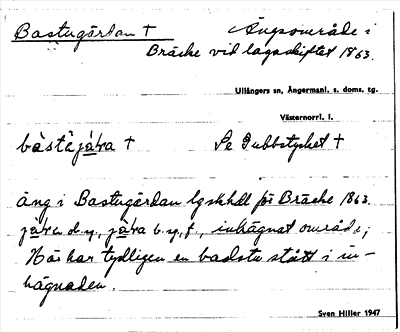 Bastugärdan † Ängsområde i
Bräcke vid lagaskiftet 1863.
Ullångers sn, Ångermanl. s. doms. tg.
Västernorrl. l.
bàstejáṙa † Se Gubbstycket †
äng i Bastugärdan lgskhdl för Bräcke 1863.
inhägnat område;
Här har tydligen en badstu stått i in-
hägnaden.
Sven Hiller 1947